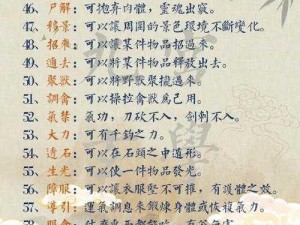 46、尸解：可拋弃內體，靈魂出竅。
47、移景：可以讓周圍的景色環境不斷變化。
48、招來：可以讓某件物品招過來。
49、邇去：可以將某件物品釋放出去。
50、聚獸：可以將野獸聚攏過來。
51、調禽：可以操控禽獸爲己用。
52、氣禁：氣功，刀砍不入，劍刺不入。
53、大力：可有千鈞之力。
54、透石：可以在石頭之中遁形。
55、生光：可以使一件物品發光。
56、障服：可以讓衣服堅不可摧，有護體之效。
57、導引：運氣調息來鍛煉身體或恢複氣力。